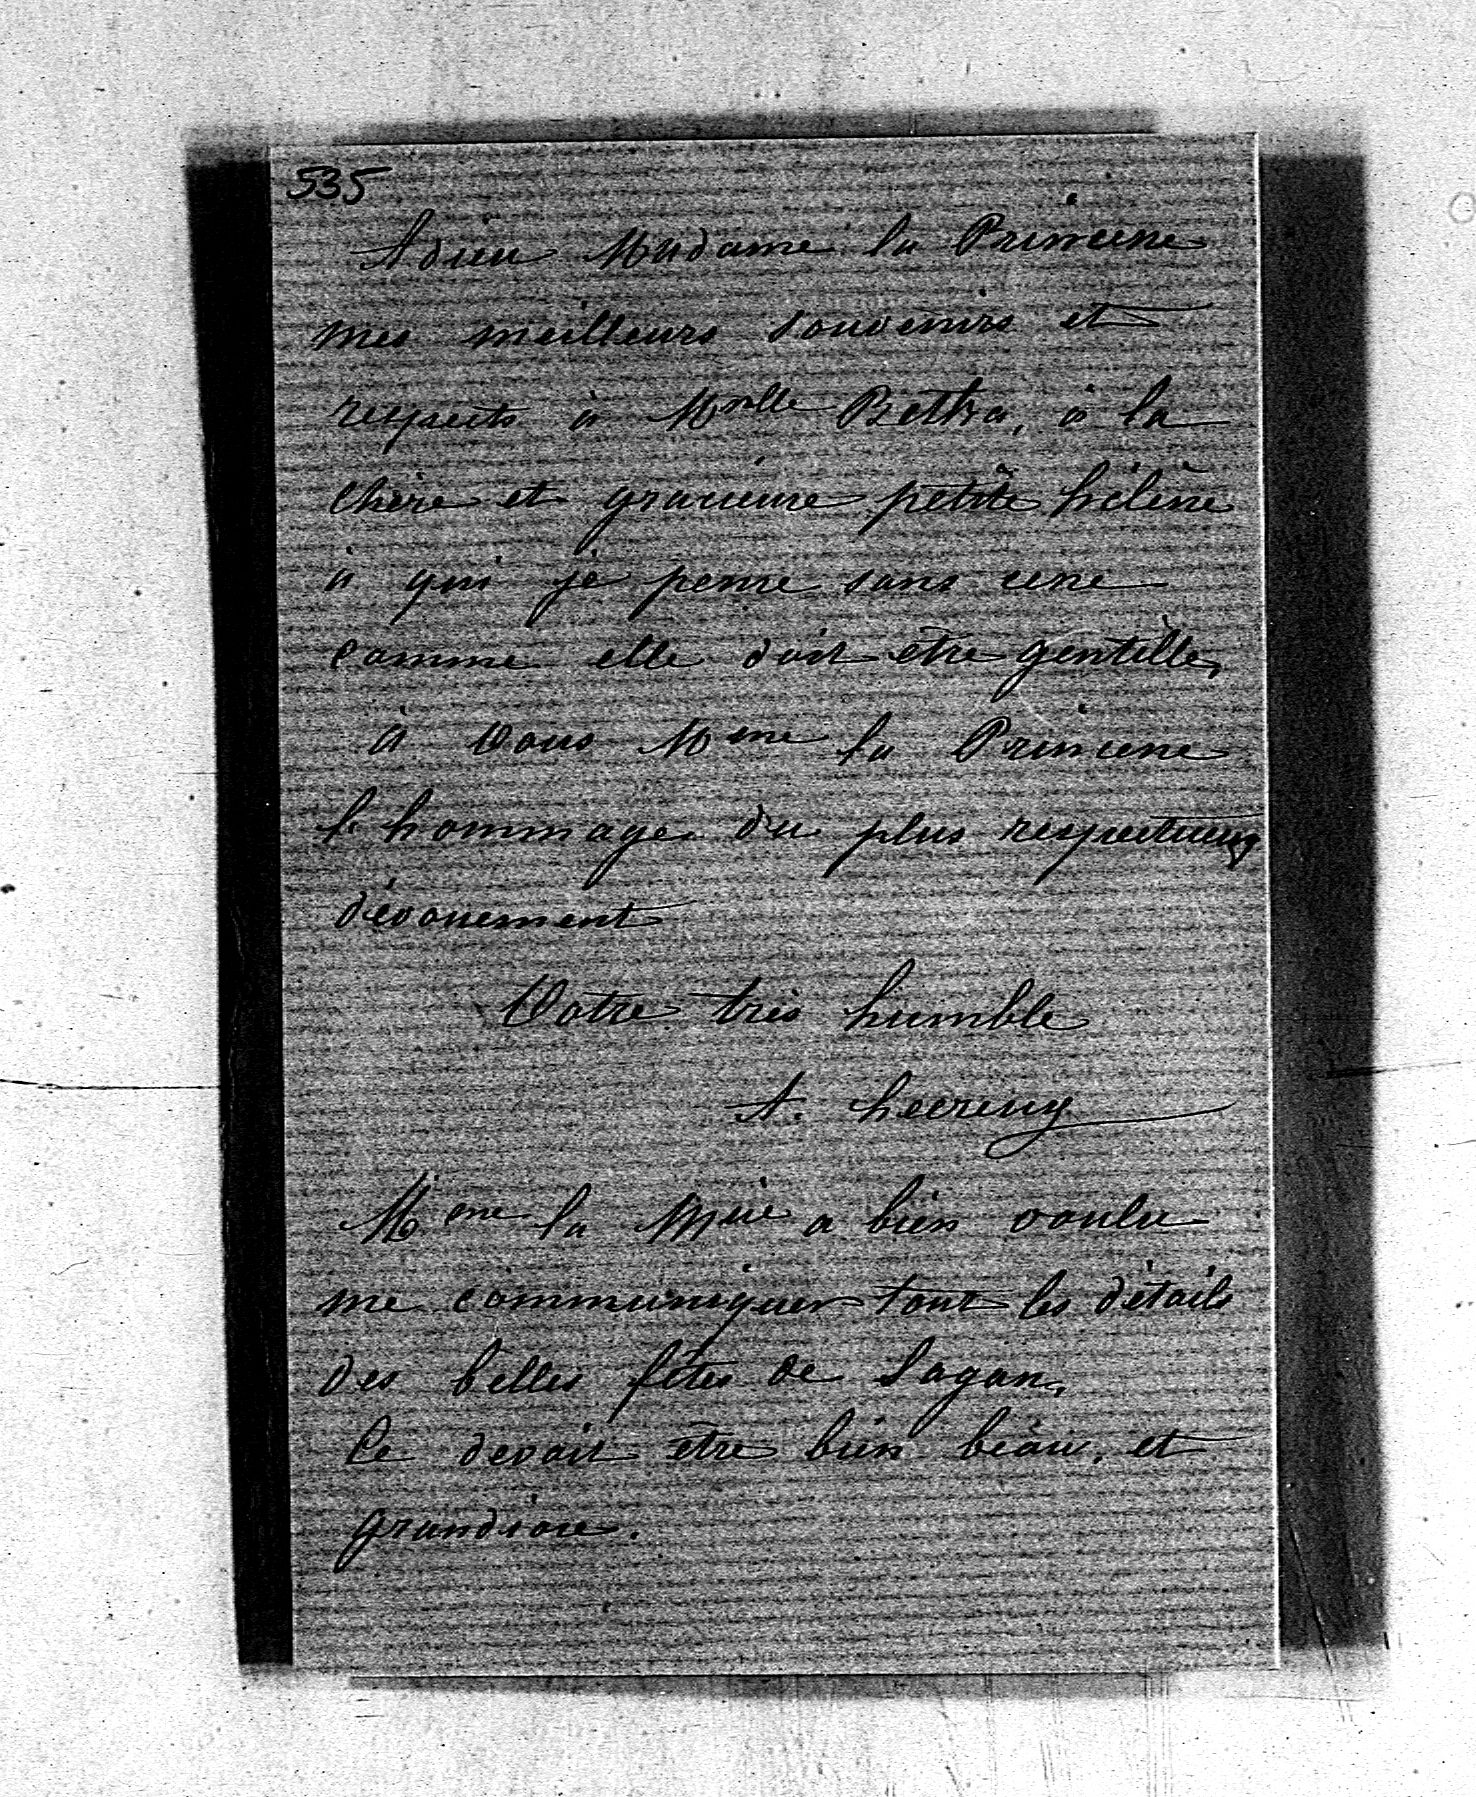 535
Adieu Madame la Princesse
mes meilleurs souvenirs et
respects à Melle Betka, à la
chère et gracieuse petite hélène
à qui je pense sans cesse
comme elle doit être gentille,
à vous Mme la Princesse
l'hommage du plus respectueux
dévouement
Votre très humble
A.
Mme la Mise a bien voulu
me communiquer tout les détails
des belles fêtes de Sagan,
Ce devait être bien beau, et
grandiose.